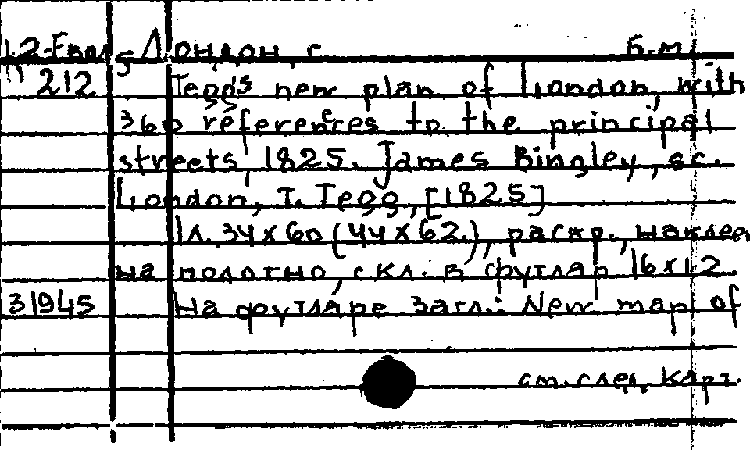 К 2-Евр 5 Лондон, г. Б.м.
212 Tegg's new plan of London, with
360 references to the principal
streets, 1825. James Bingley, sc.
London, T. Tegg, [1825]
1л. 34х60 (44х62), раскр., наклеен
на полотно, скл. в футляр 16х12
31945 На футляре загл.: New map of
см. след. карт.